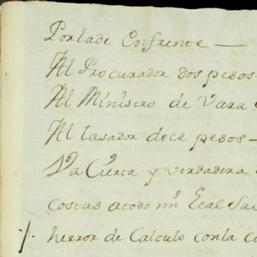 Por lade Enfrente —
Al Procurador dos pesos
Al Ministro de Vara
Al tasador doce pesos —
Va Cierta y verdadera
costas a todo mi Leal Sa
herror de Calculo con la c